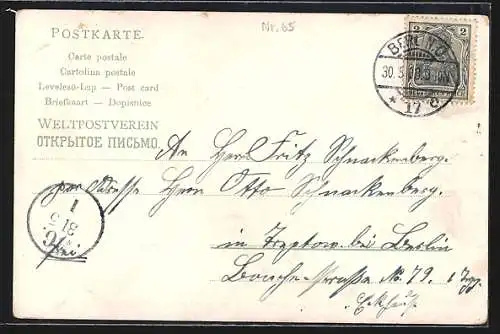 Nr. 65
POSTKARTE.
Carte postale
Cartolina postale
Levelező-Lap — Post card
Briefkaart — Dopisnice
WELTPOSTVEREIN
ОТКРЫТОЕ ПИСЬМО.
2 2
BERLIN
30. 5.
* 17
An Herrn Fritz Schnackenberg.
per Adresse Herrn Otto Schnackenberg.
in Treptow bei Berlin
Bouché-strasse No. 79. 1 Trp
Eckhaus.
1
31 5
frei